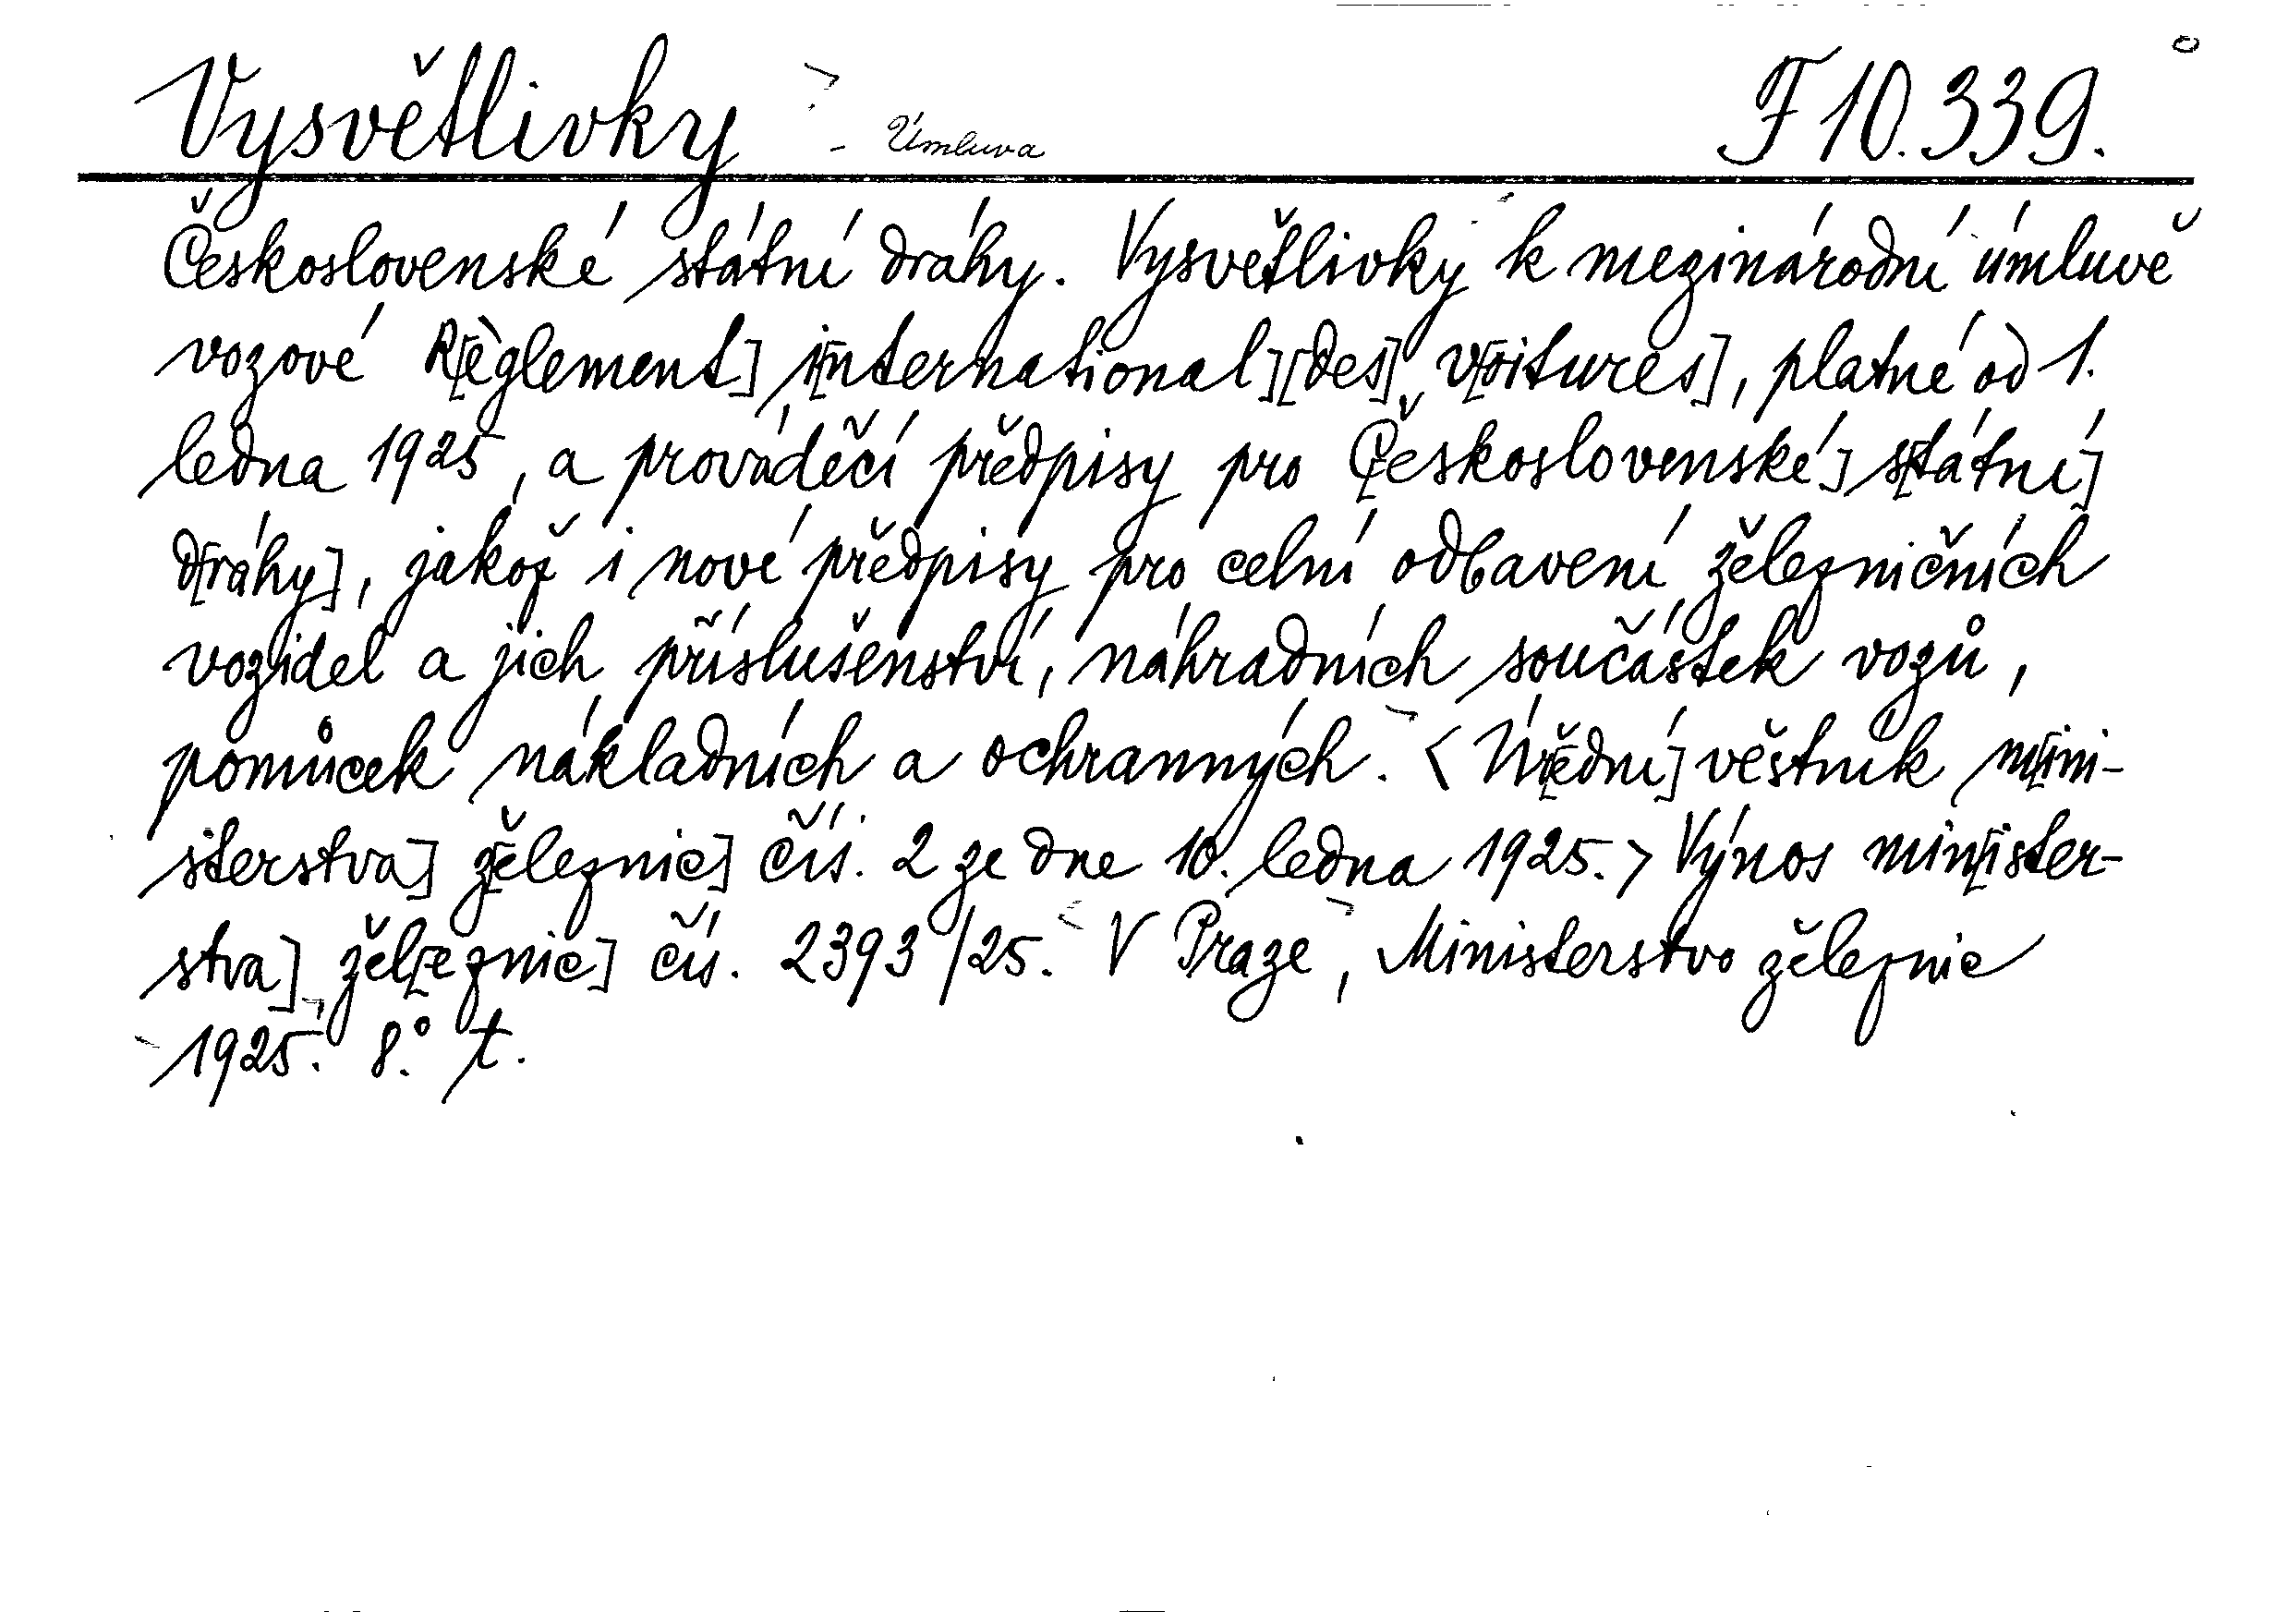 Vysvětlivky - Úmluva F 10.339.
Československé státní dráhy. Vysvětlivky k mezinárodní úmluvě
vozové R[èglement] i[nternational] [des] v[oitures], platné od 1.
ledna 1925, a prováděčí předpisy pro Č[eskoslovenské] s[tátní]
d[ráhy], jakož i nové předpisy pro celní odbavení železničních
vozidel a jich příslušenství, náhradních součástek vozů,
pomůcek nákladních a ochranných. < Úř[ední] věstník m[ini-
sterstva] ž[eleznic] čís. 2 ze dne 10. ledna 1925. > Výnos min[ister-
stva] žel[eznic] čís. 2393/25. V Praze, Ministerstvo železnic
1925. 8.° t.